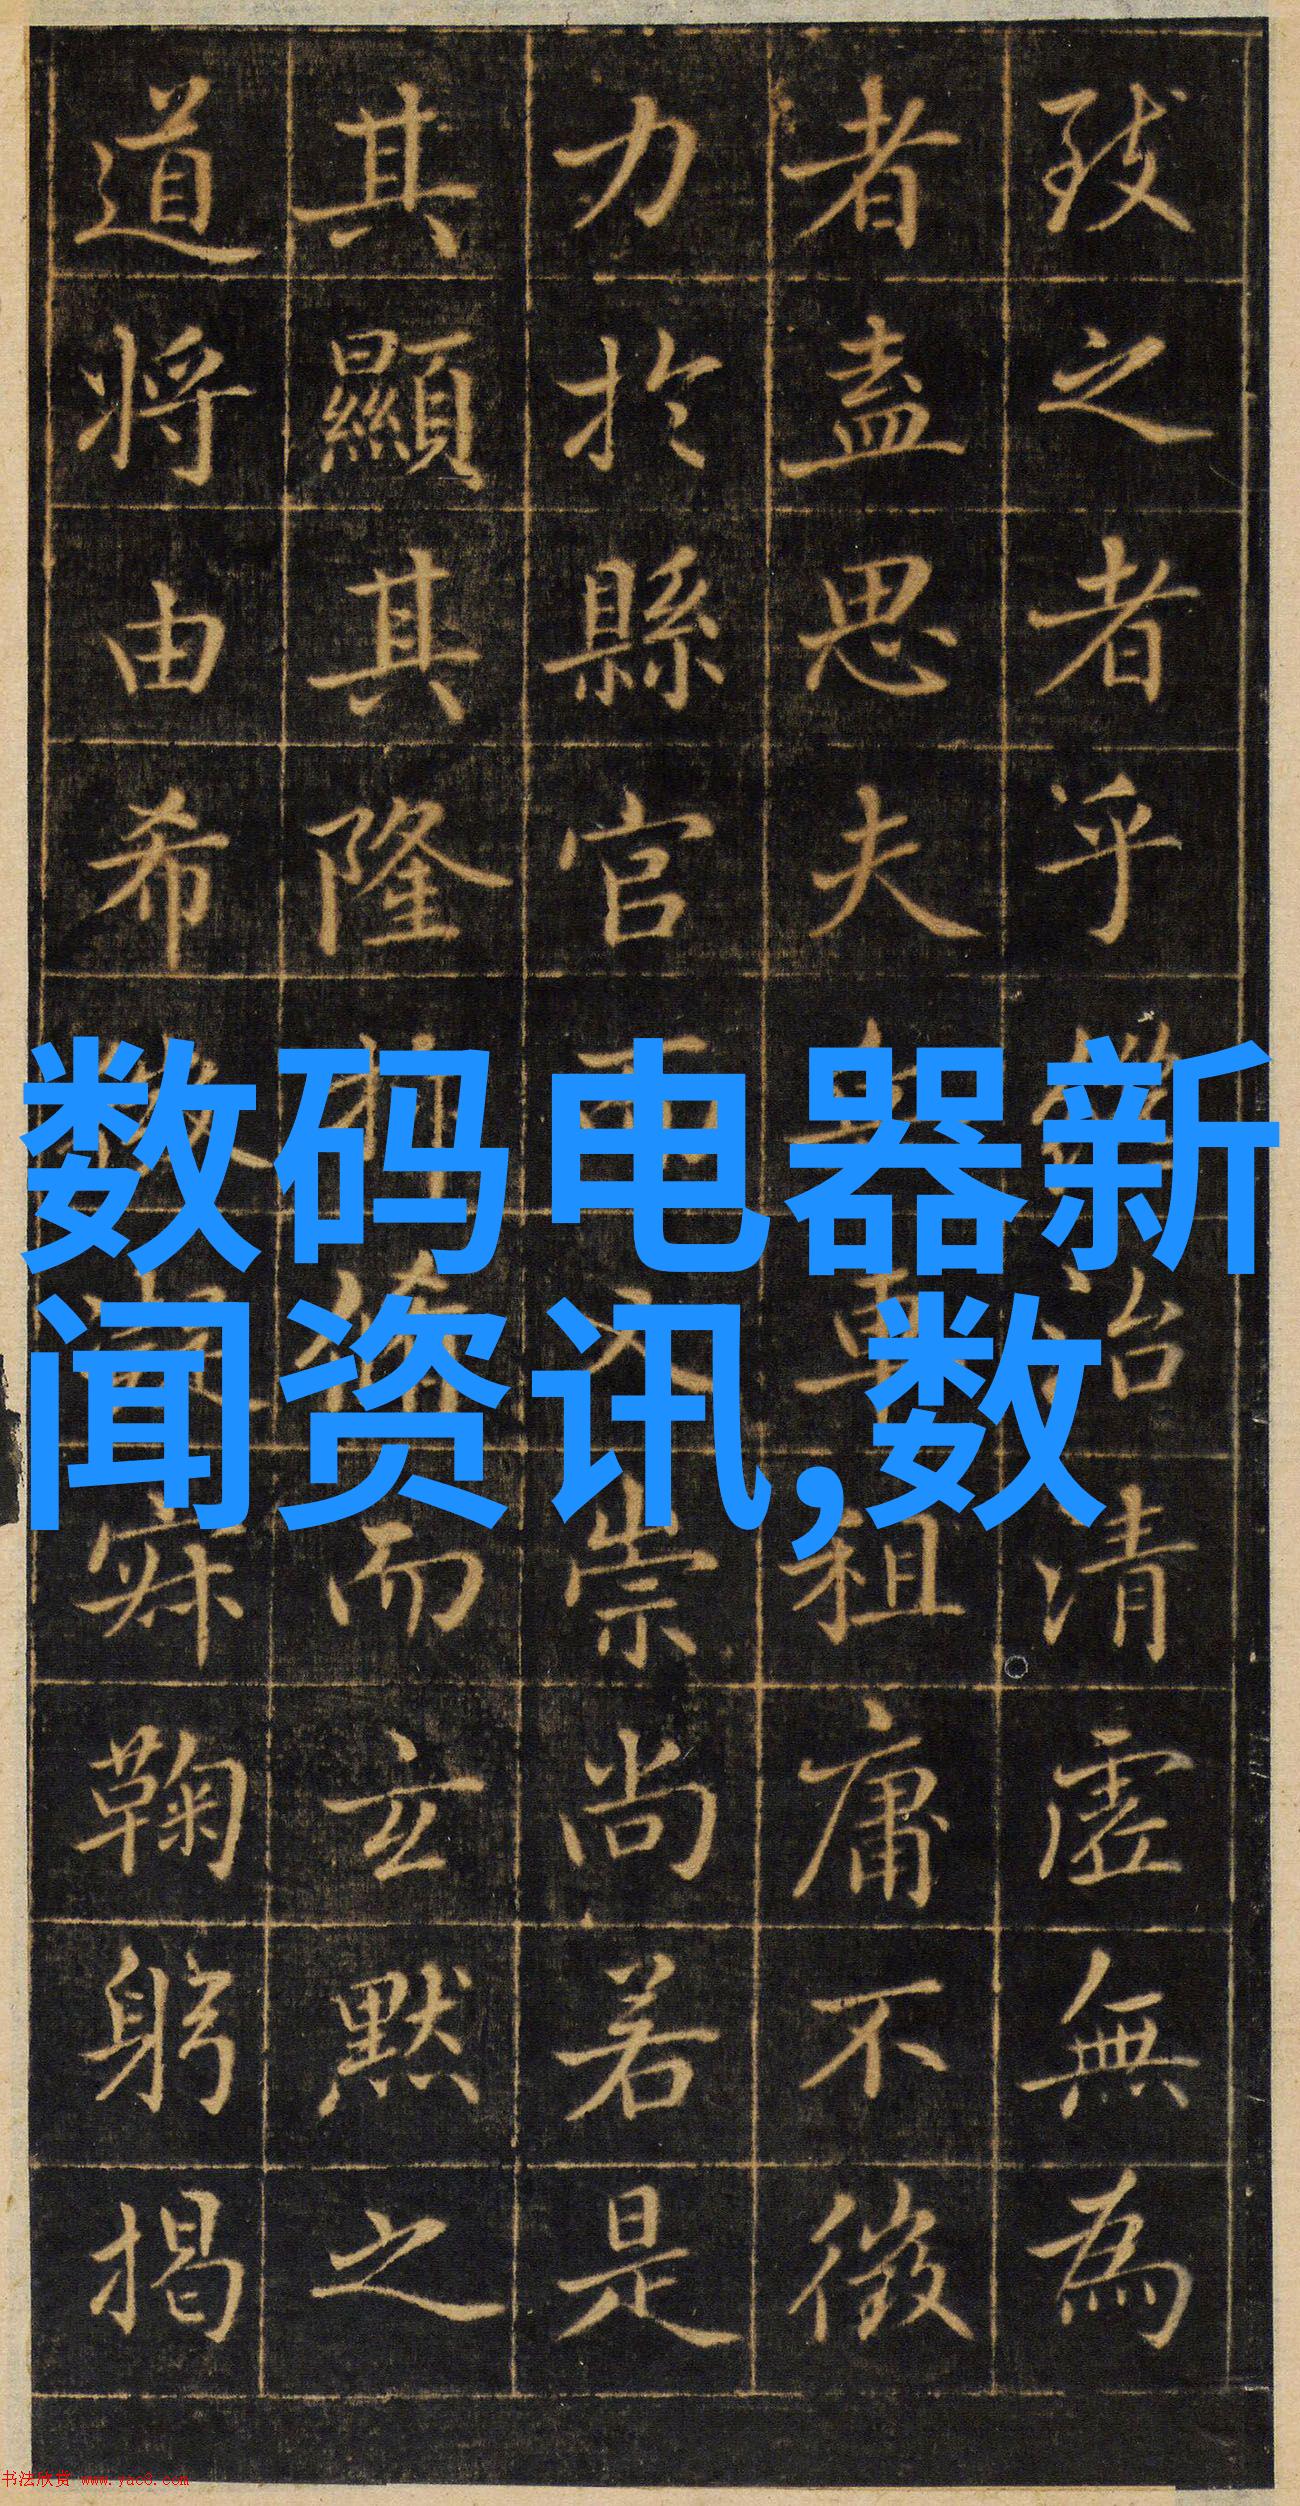 致之者乎治清虛無為
者盡思夫租庸不徵
力於縣官崇尚若是
其顯其隆而玄默之
道將由希寐鞠躬揭
数码电器新
闻资讯,数
书法欣赏 www.yac8.com